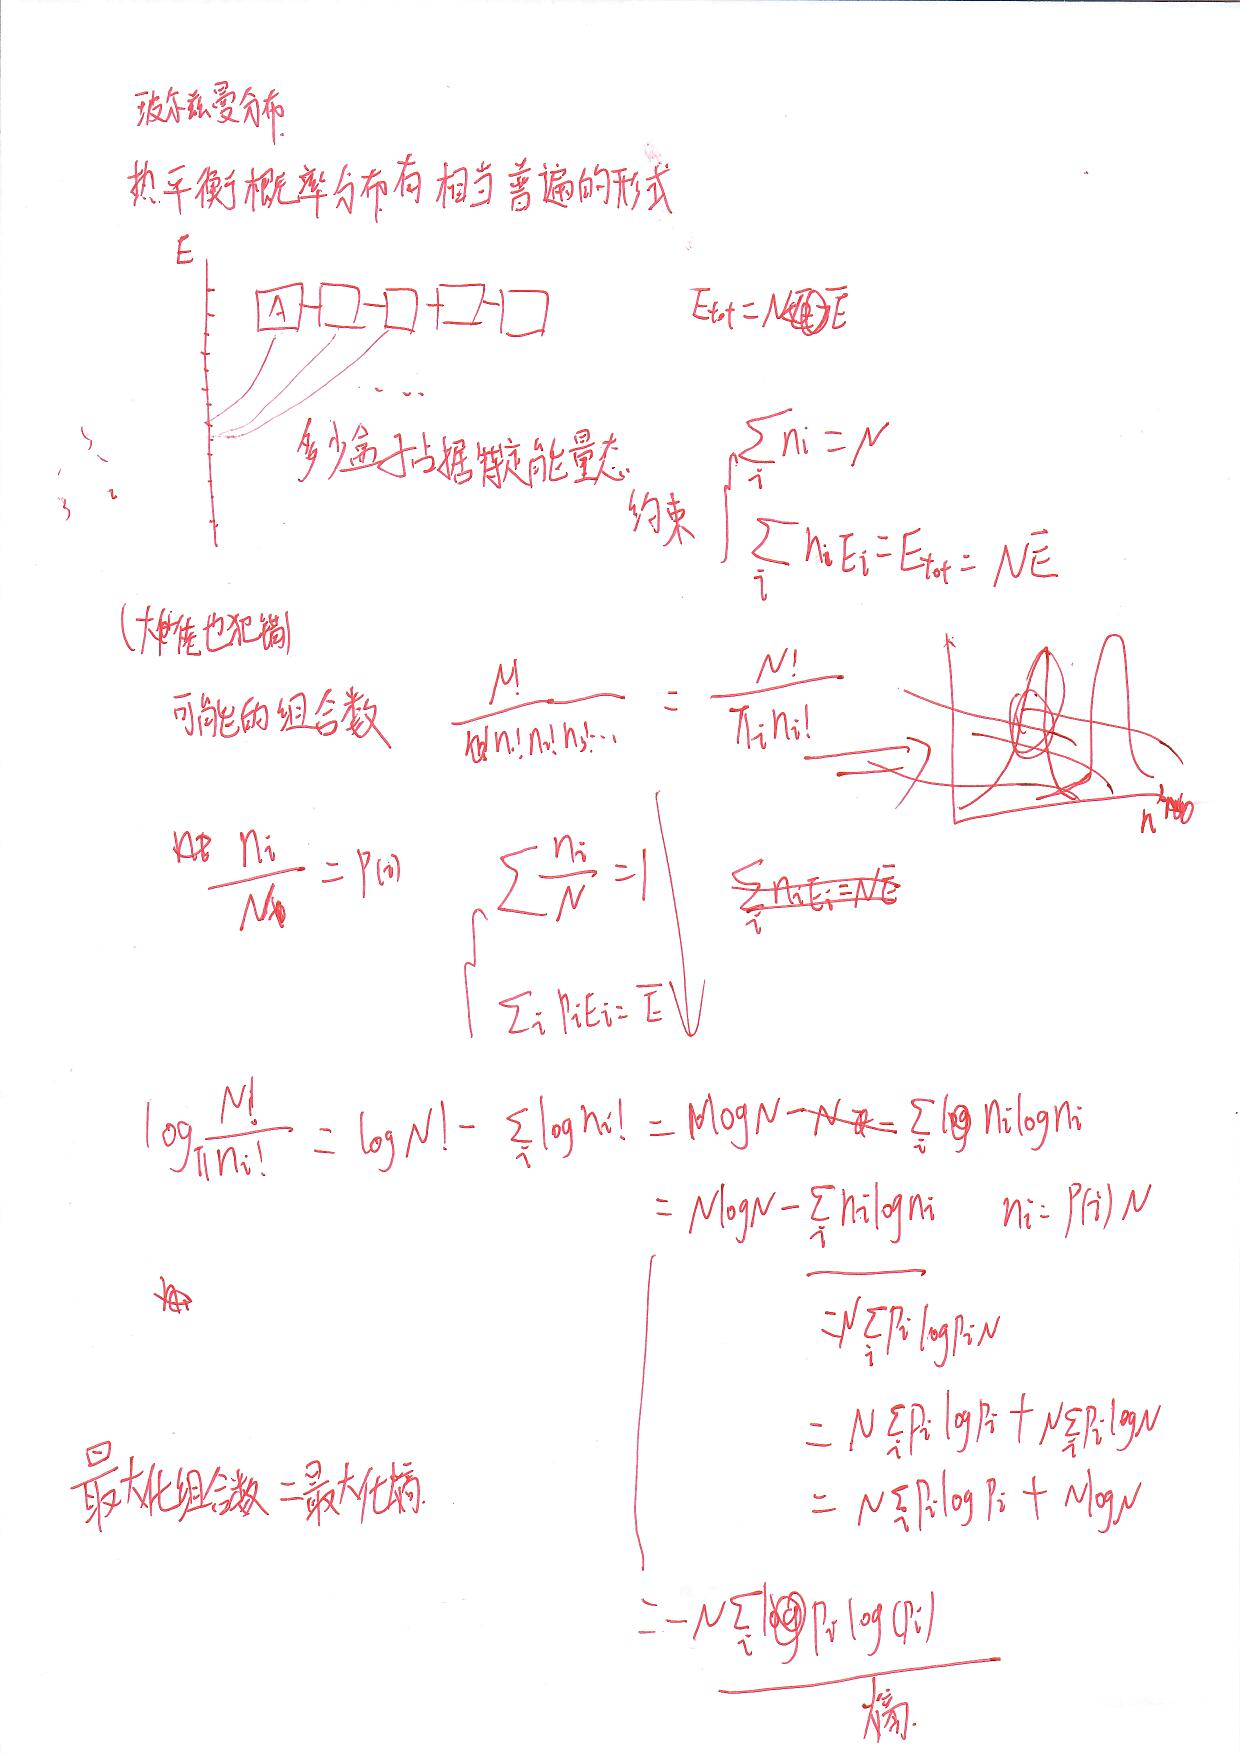 玻尔兹曼分布
热平衡概率分布有相当普遍的形式
E
A
E_tot = N Ē
...
多少盒子占据特定能量态
约束
∑_i n_i = N
∑_i n_i E_i = E_tot = N Ē
也犯错)
可能的组合数 N! / n_1! n_2! n_3! ... = N! / π_i n_i!
n
n_i / N = P(i)
∑ n_i / N = 1
∑_i n_i E_i = N Ē
∑_i P_i E_i = Ē
log N! / π n_i! = log N! - ∑_i log n_i! = N log N - ∑_i n_i log n_i
= N log N - ∑_i n_i log n_i n_i = P(i) N
= N ∑_i P_i log P_i N
= N ∑_i P_i log P_i + N ∑_i P_i log N
= N ∑_i P_i log P_i + N log N
最大化组合数 = 最大化熵.
= - N ∑_i P_i log (P_i)
熵.